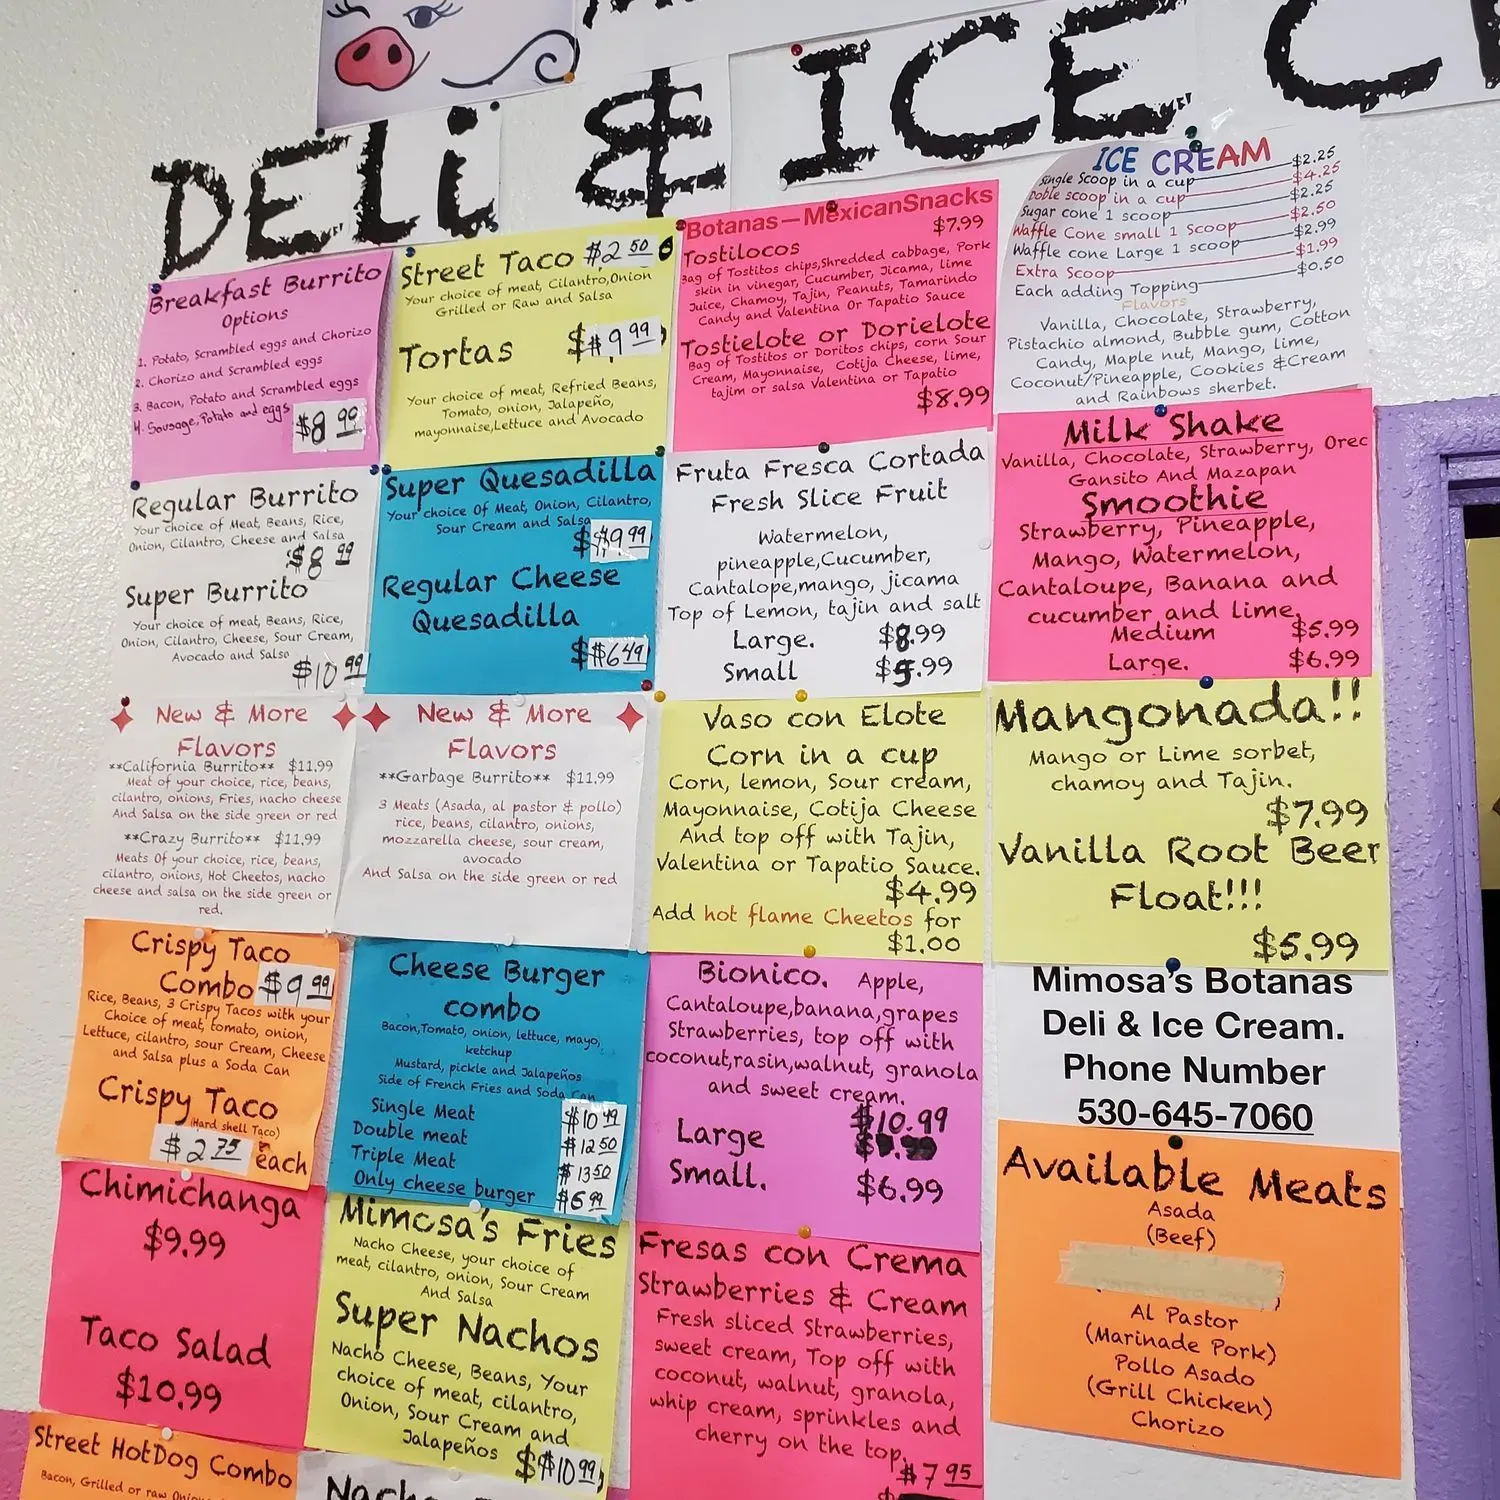 DELi & ICE C
Breakfast Burrito
Options
1. Potato, Scrambled eggs and Chorizo
2. Chorizo and Scrambled eggs
3. Bacon, Potato and Scrambled eggs
4. Sausage, Potato and eggs
$8 99
Regular Burrito
Your choice of Meat, Beans, Rice,
Onion, Cilantro, Cheese and Salsa
$8 99
Super Burrito
Your choice of meat, Beans, Rice,
Onion, Cilantro, Cheese, Sour Cream,
Avocado and Salsa
$10 99
New & More
Flavors
**California Burrito** $11.99
Meat of your choice, rice, beans,
cilantro, onions, Fries, nacho cheese
And Salsa on the side green or red
**Crazy Burrito** $11.99
Meats Of your choice, rice, beans,
cilantro, onions, Hot Cheetos, nacho
cheese and salsa on the side green or
red.
Crispy Taco
Combo $9 99
Rice, Beans, 3 Crispy Tacos with your
Choice of meat, tomato, onion,
Lettuce, cilantro, sour Cream, Cheese
and Salsa plus a Soda Can
Crispy Taco
(Hard shell Taco)
$2 75 each
Chimichanga
$9.99
Taco Salad
$10.99
Street HotDog Combo
Bacon, Grilled or raw
Street Taco $2 50
Your choice of meat, Cilantro,Onion
Grilled or Raw and Salsa
Tortas $9 99
Your choice of meat, Refried Beans,
Tomato, onion, Jalapeño,
mayonnaise,Lettuce and Avocado
Super Quesadilla
Your choice Of Meat, Onion, Cilantro,
Sour Cream and Salsa
$$9 99
Regular Cheese
Quesadilla
$$6 49
New & More
Flavors
**Garbage Burrito** $11.99
3 Meats (Asada, al pastor & pollo)
rice, beans, cilantro, onions,
mozzarella cheese, sour cream,
avocado
And Salsa on the side green or red
Cheese Burger
combo
Bacon,Tomato, onion, lettuce, mayo,
ketchup
Mustard, pickle and Jalapeños
Side of French Fries and Soda Can
Single Meat $10 49
Double meat $12 50
Triple Meat $13 50
Only cheese burger $6 99
Mimosa's Fries
Nacho Cheese, your choice of
meat, cilantro, onion, Sour Cream
And Salsa
Super Nachos
Nacho Cheese, Beans, Your
choice of meat, cilantro,
Onion, Sour Cream and
Jalapeños $$10 99
Botanas—MexicanSnacks
$7.99
Tostilocos
Bag of Tostitos chips,Shredded cabbage, Pork
skin in vinegar, Cucumber, Jicama, lime
Juice, Chamoy, Tajin, Peanuts, Tamarindo
Candy and Valentina Or Tapatio Sauce
Tostielote or Dorielote
Bag of Tostitos or Doritos chips, corn Sour
Cream, Mayonnaise, Cotija Cheese, lime,
tajim or salsa Valentina or Tapatio
$8.99
Fruta Fresca Cortada
Fresh Slice Fruit
Watermelon,
pineapple,Cucumber,
Cantalope,mango, jicama
Top of Lemon, tajin and salt
Large. $8.99
Small $5.99
Vaso con Elote
Corn in a cup
Corn, lemon, Sour cream,
Mayonnaise, Cotija Cheese
And top off with Tajin,
Valentina or Tapatio Sauce.
$4.99
Add hot flame Cheetos for
$1.00
Bionico. Apple,
Cantaloupe,banana,grapes
Strawberries, top off with
coconut,rasin,walnut, granola
and sweet cream.
Large $10.99
Small. $6.99
Fresas con Crema
Strawberries & Cream
Fresh sliced Strawberries,
sweet cream, Top off with
coconut, walnut, granola,
whip cream, sprinkles and
cherry on the top.
$7 95
ICE CREAM
Single Scoop in a cup $2.25
Doble scoop in a cup $4.25
Sugar cone 1 scoop $2.25
Waffle Cone small 1 Scoop $2.50
Waffle cone Large 1 scoop $2.99
Extra Scoop $1.99
Each adding Topping $0.50
Flavors
Vanilla, Chocolate, Strawberry,
Pistachio almond, Bubble gum, Cotton
Candy, Maple nut, Mango, lime,
Coconut/Pineapple, Cookies &Cream
and Rainbows sherbet.
Milk Shake
Vanilla, Chocolate, Strawberry, Oreo
Gansito And Mazapan
Smoothie
Strawberry, Pineapple,
Mango, Watermelon,
Cantaloupe, Banana and
cucumber and lime,
Medium $5.99
Large. $6.99
Mangonada!!
Mango or Lime sorbet,
chamoy and Tajin.
$7.99
Vanilla Root Beer
Float!!!
$5.99
Mimosa's Botanas
Deli & Ice Cream.
Phone Number
530-645-7060
Available Meats
Asada
(Beef)
Al Pastor
(Marinade Pork)
Pollo Asado
(Grill Chicken)
Chorizo